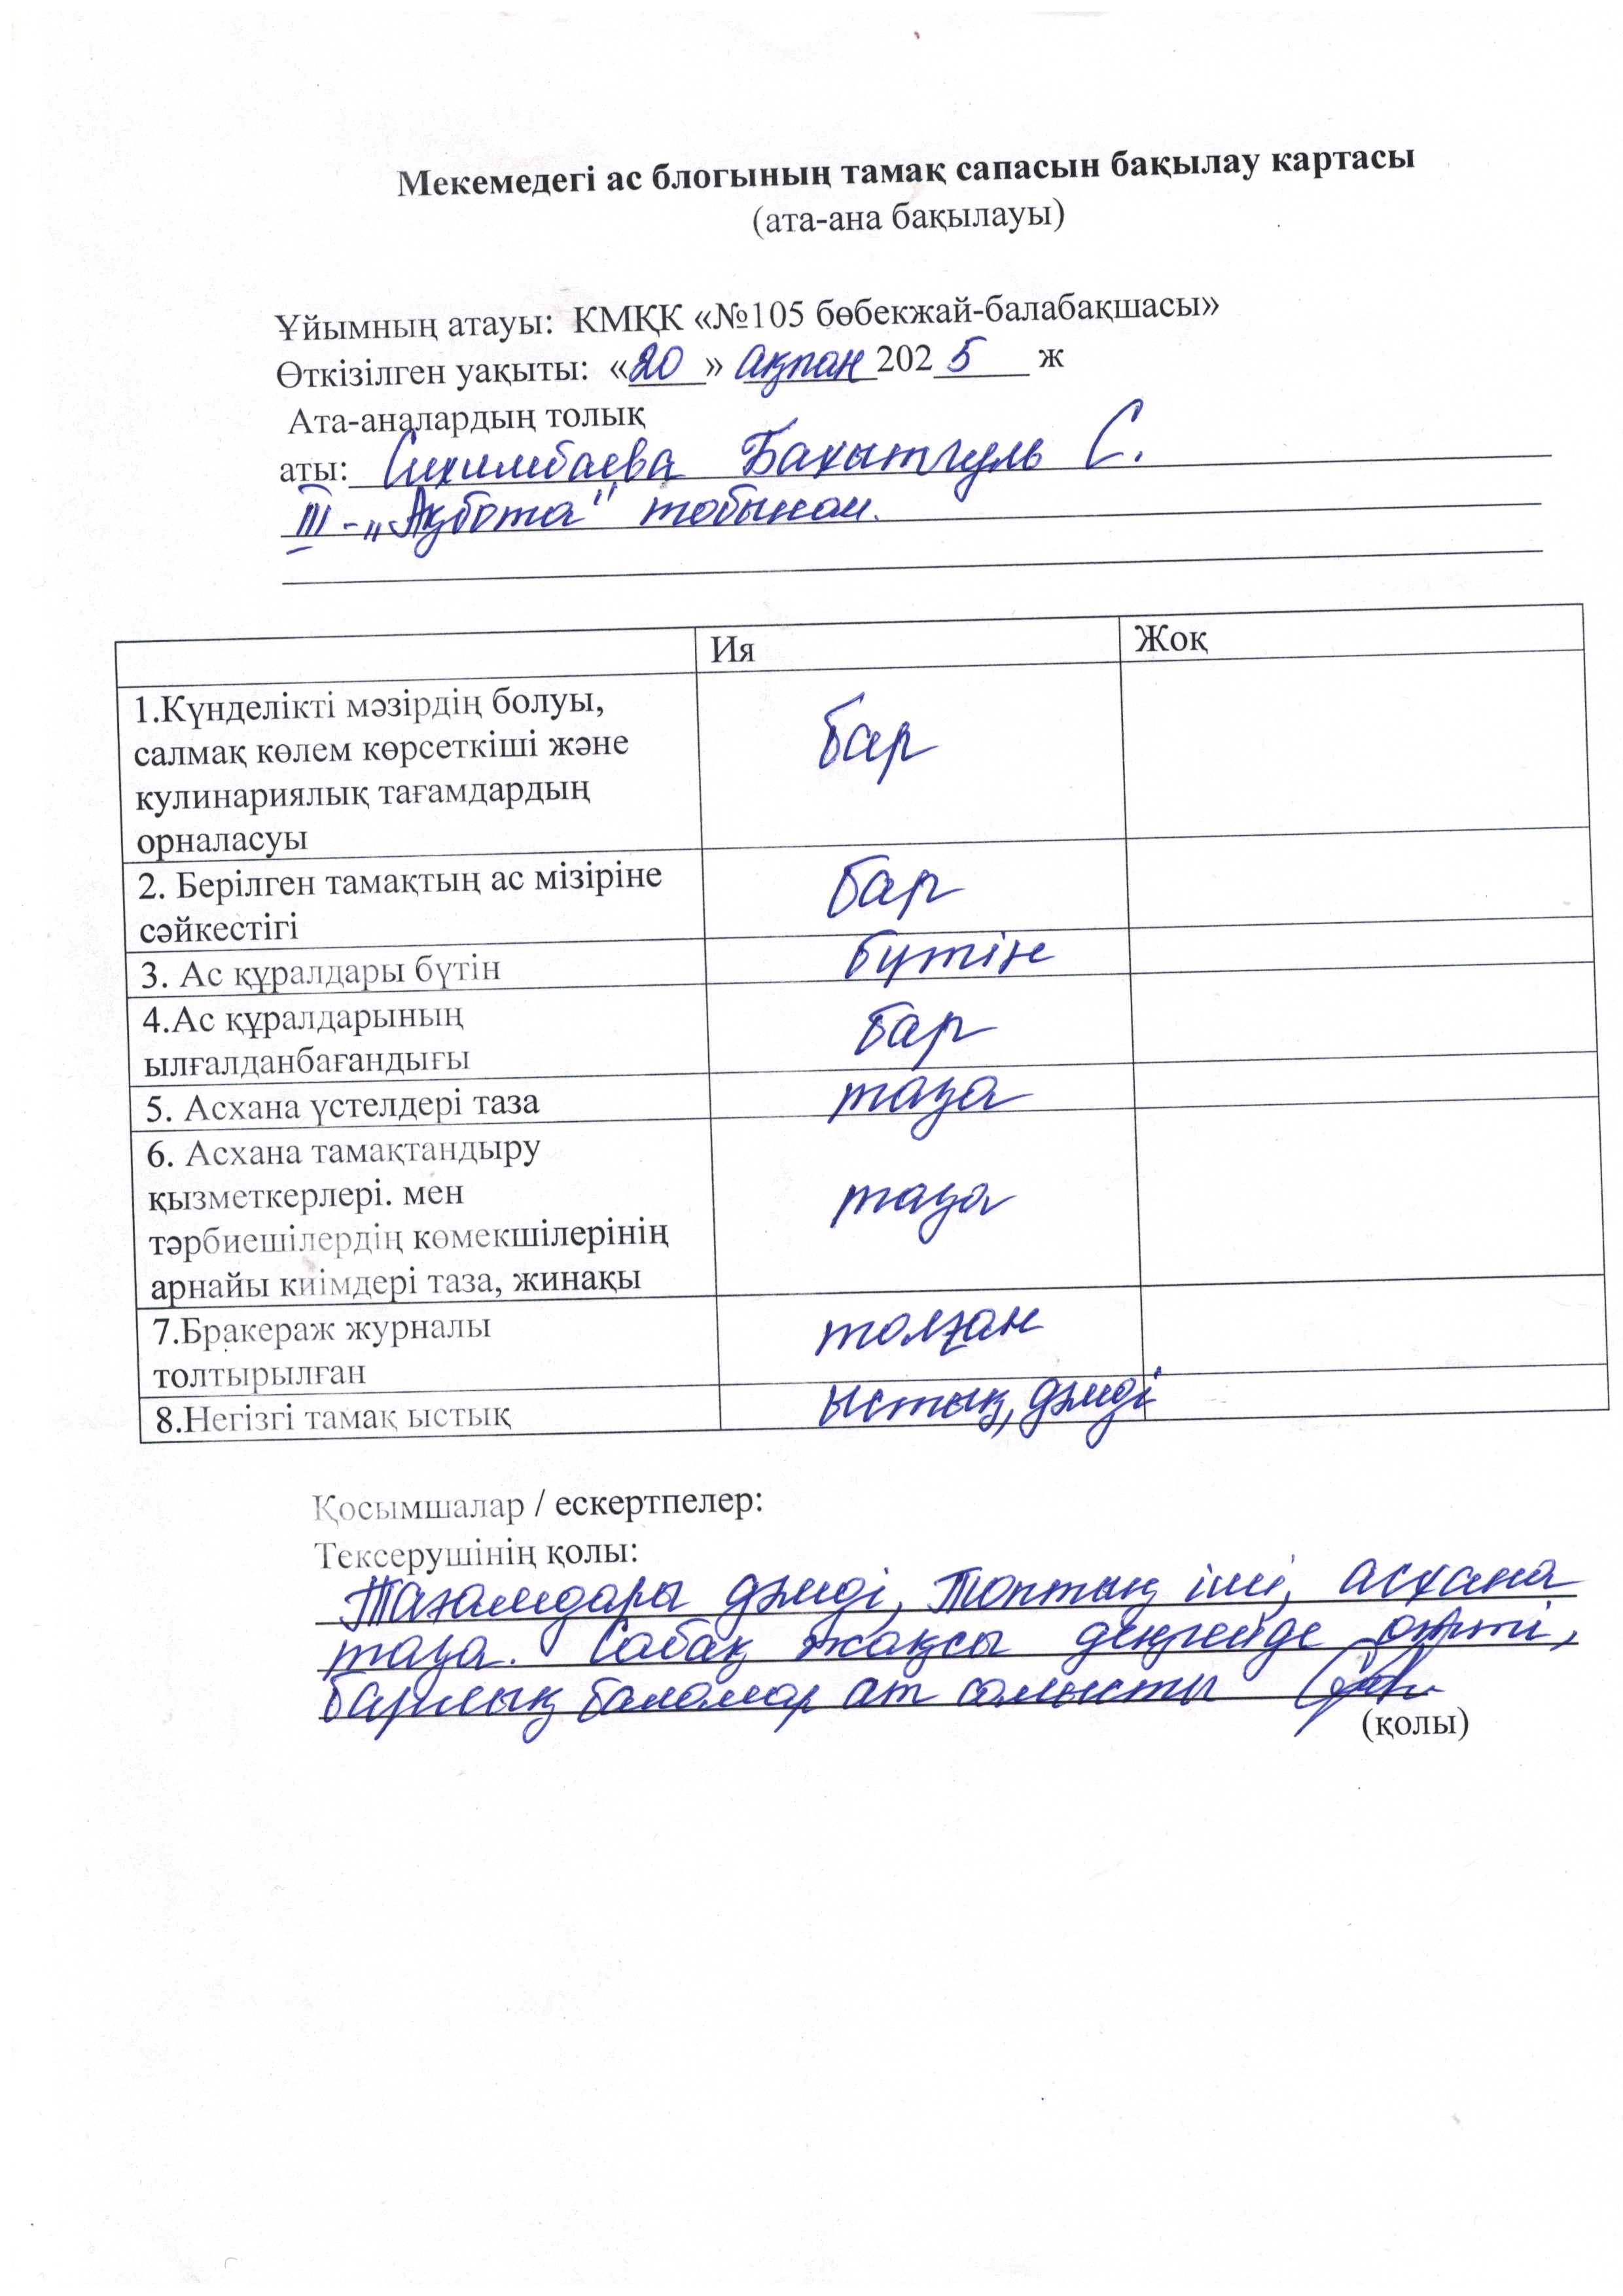 Мекемедегі ас блогының тамақ сапасын бақылау картасы
(ата-ана бақылауы)
Ұйымның атауы: КМҚК «№105 бөбекжай-балабақшасы»
Өткізілген уақыты: «20» ақпан 2025 ж
Ата-аналардың толық
аты: Сихимбаева Бахытгуль С.
III - „Ақбота" тобынан.
Ия Жоқ
1.Күнделікті мәзірдің болуы,
салмақ көлем көрсеткіші және
кулинариялық тағамдардың
орналасуы
бар
2. Берілген тамақтың ас мізіріне
сәйкестігі
бар
3. Ас құралдары бүтін бүтін
4.Ас құралдарының
ылғалданбағандығы
бар
5. Асхана үстелдері таза таза
6. Асхана тамақтандыру
қызметкерлері. мен
тәрбиешілердің көмекшілерінің
арнайы киімдері таза, жинақы
таза
7.Бракераж журналы
толтырылған
толған
8.Негізгі тамақ ыстық ыстық, дәмді
Қосымшалар / ескертпелер:
Тексерушінің қолы:
Тағамдары дәмді, Топтың іші, асхана
таза. Сабақ жақсы деңгейде өтті,
барлық балалар ат салысты
(қолы)